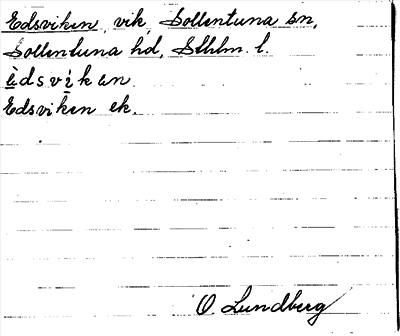 Edsviken, vik, Sollentuna sn,
Sollentuna hd, Sthlm. l.
è̱dsvì̱kan.
Edsviken ek.
O Lundberg